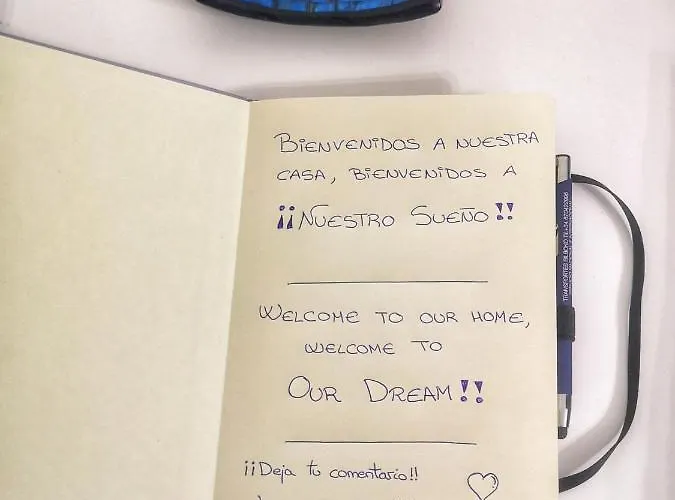 BIENVENIDOS A NUESTRA
CASA, BIENVENIDOS A
¡¡NUESTRO SUEÑO!!
WELCOME TO OUR HOME,
WELCOME TO
OUR DREAM!!
¡¡Deja tu comentario!!
TRANSPORTES